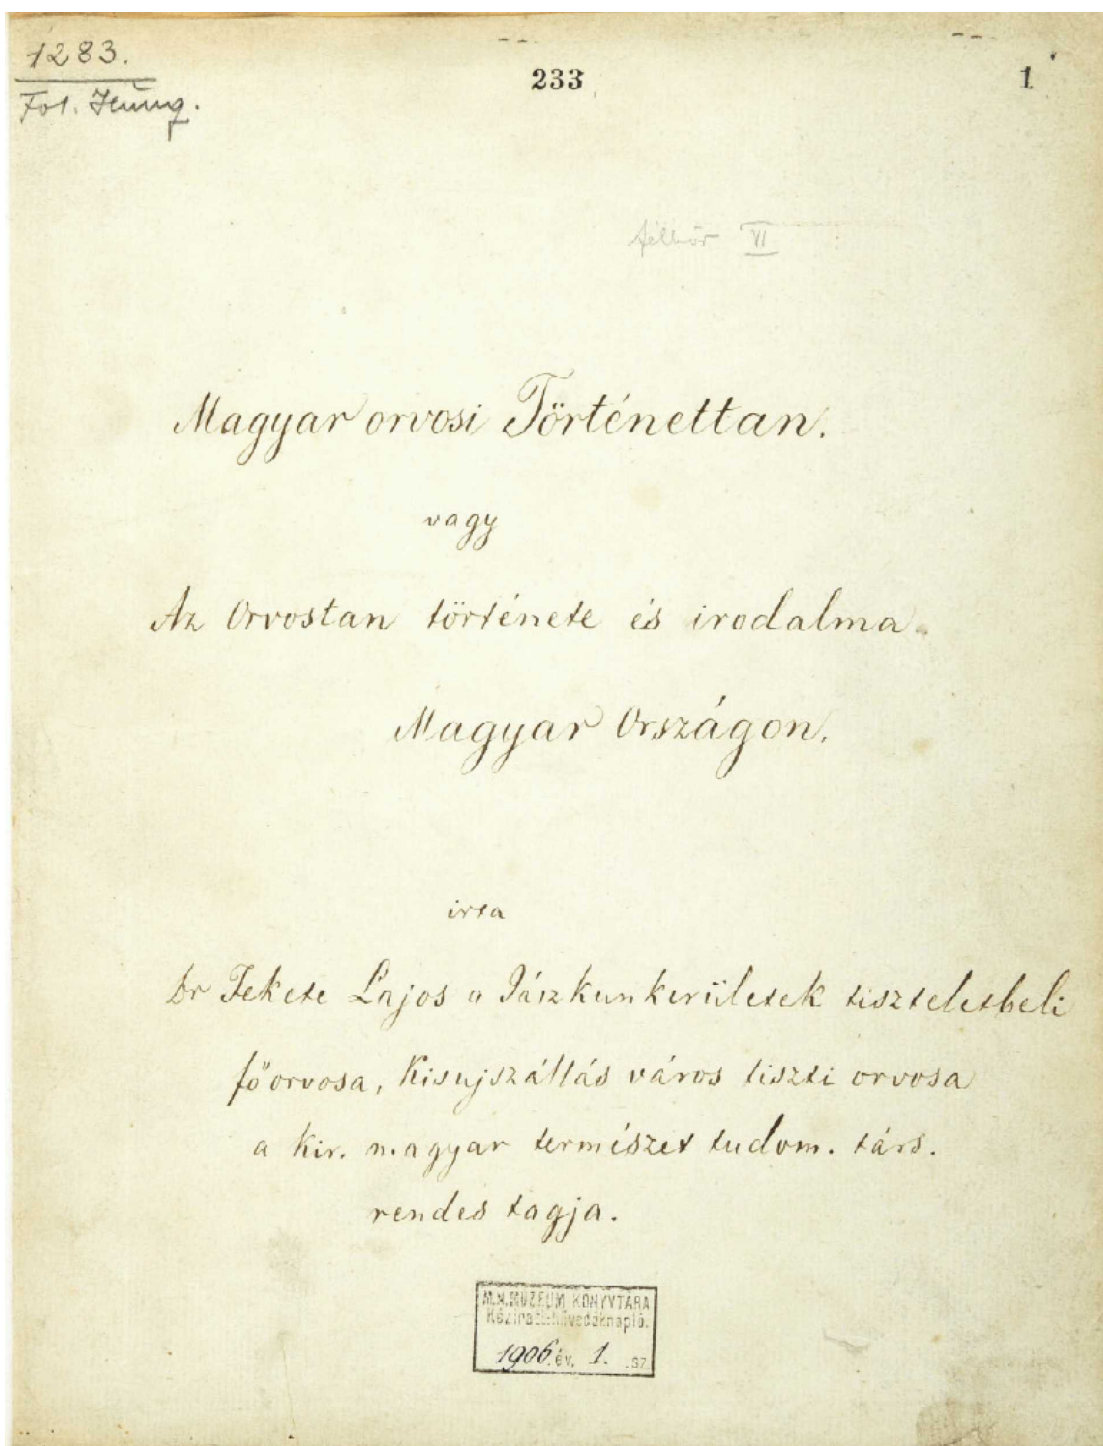 1283.
Fol. Hung.
233
1
félbőr VI
Magyar orvosi Történettan.
vagy
Az Orvostan története és irodalma
Magyar Országon.
irta
Dr Fekete Lajos a Jászkun kerületek tiszteletbeli
főorvosa, Kisujszállás város tiszti orvosa
a kir. magyar természet tudom. társ.
rendes tagja.
M.N.MÚZEUM KÖNYVTÁRA
Kézirati növedéknapló.
1906. év. 1. sz.